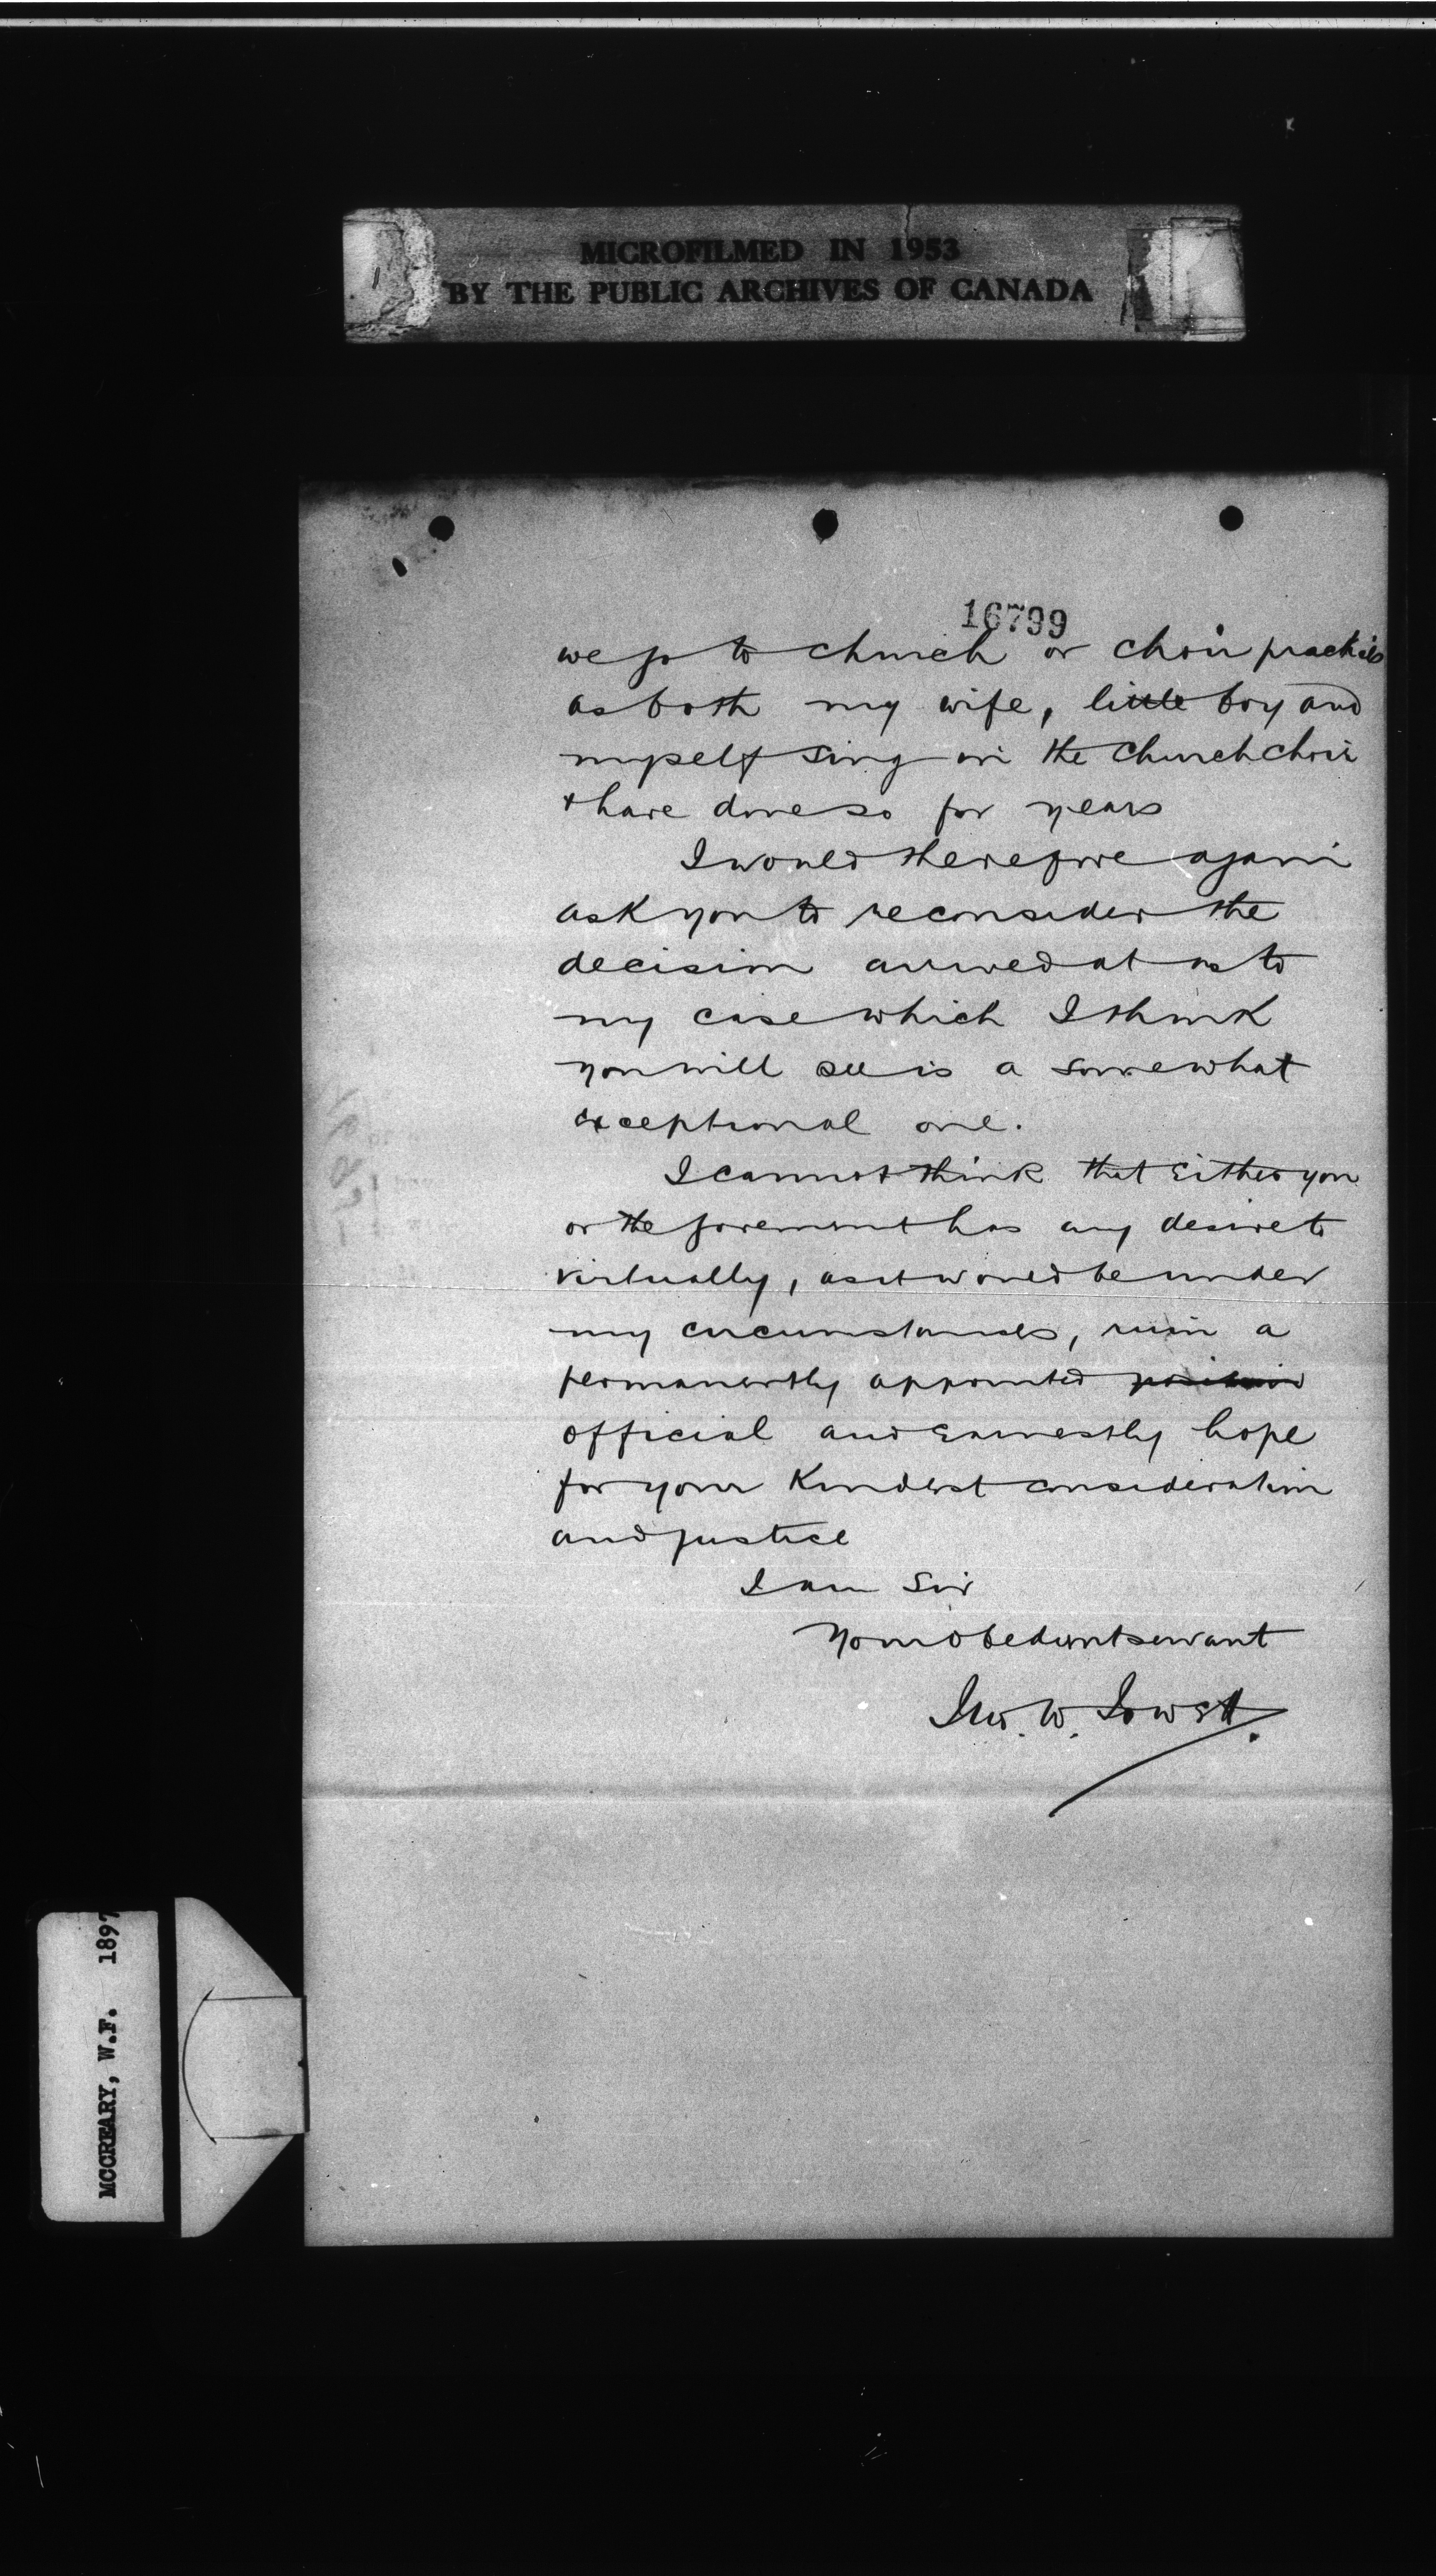 MICROFILMED IN 1953
BY THE PUBLIC ARCHIVES OF CANADA
16799
we go to church or choir practices
as both my wife, little boy and
myself sing in the church choir
& have done so for years
I would therefore again
ask you to reconsider the
decision arrived at as to
my case which I think
you will see is a somewhat
exceptional one.
I cannot think that Either you
or the government has any desire to
virtually, as it would be under
my circumstances, ruin a
permanently appointed position
official and Earnestly hope
for your Kindest consideration
and justice
I am Sir
Your obedient servant
Jno. W. Jowett.
MCCREARY, W.F. 1897